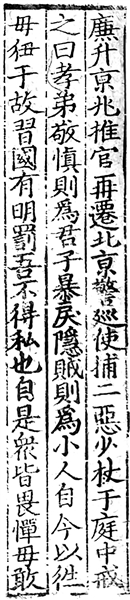 廉升京兆推官再遷北京警廵使捕二惡少杖于庭中戒
之曰孝弟敬慎則為君子暴戾隱賊則為小人自今以徃
毋狃于故習國有明罰吾不得私也自是衆皆畏憚毋敢